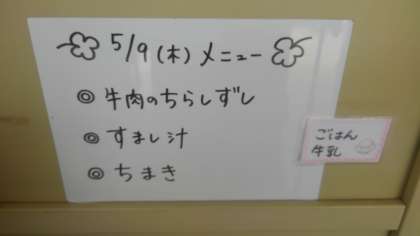 5/9(木)メニュー
◎ 牛肉のちらしずし
◎ すまし汁
◎ ちまき
ごはん
牛乳